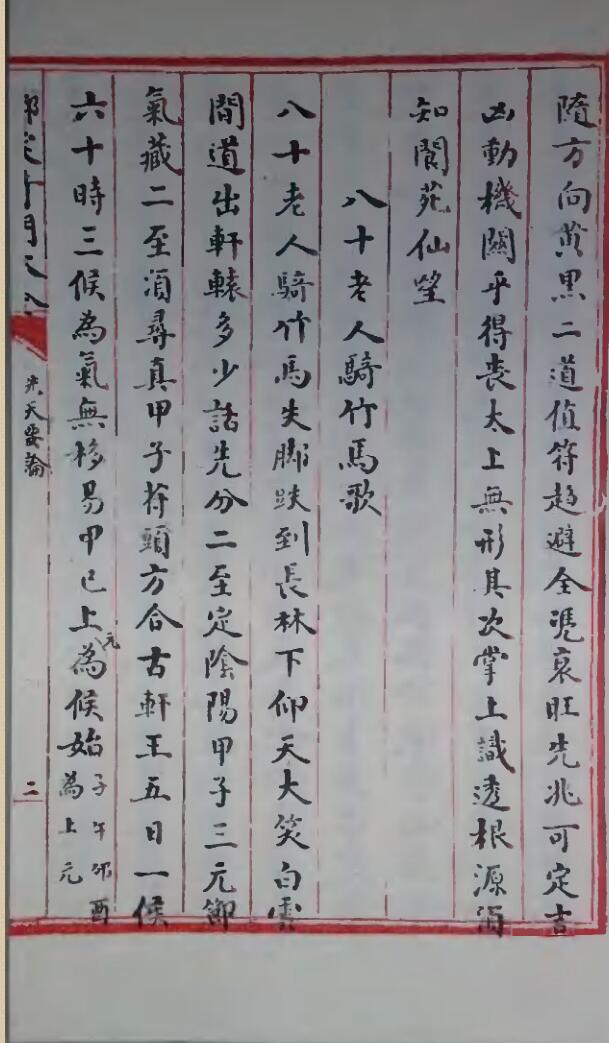 隨方向黃黑二道值符趨避全憑衰旺先兆可定吉
凶動機關乎得喪太上無形其次掌上識透根源須
知閬苑仙堂
八十老人騎竹馬歌
八十老人騎竹馬失脚跌到長林下仰天大笑白雲
間道出軒轅多少話先分二至定陰陽甲子三元節
氣藏二至須尋真甲子符頭方合古軒王五日一候
六十時三候為氣無移易甲己上元為候始子午卯酉為上元
奇門
先天要論
二